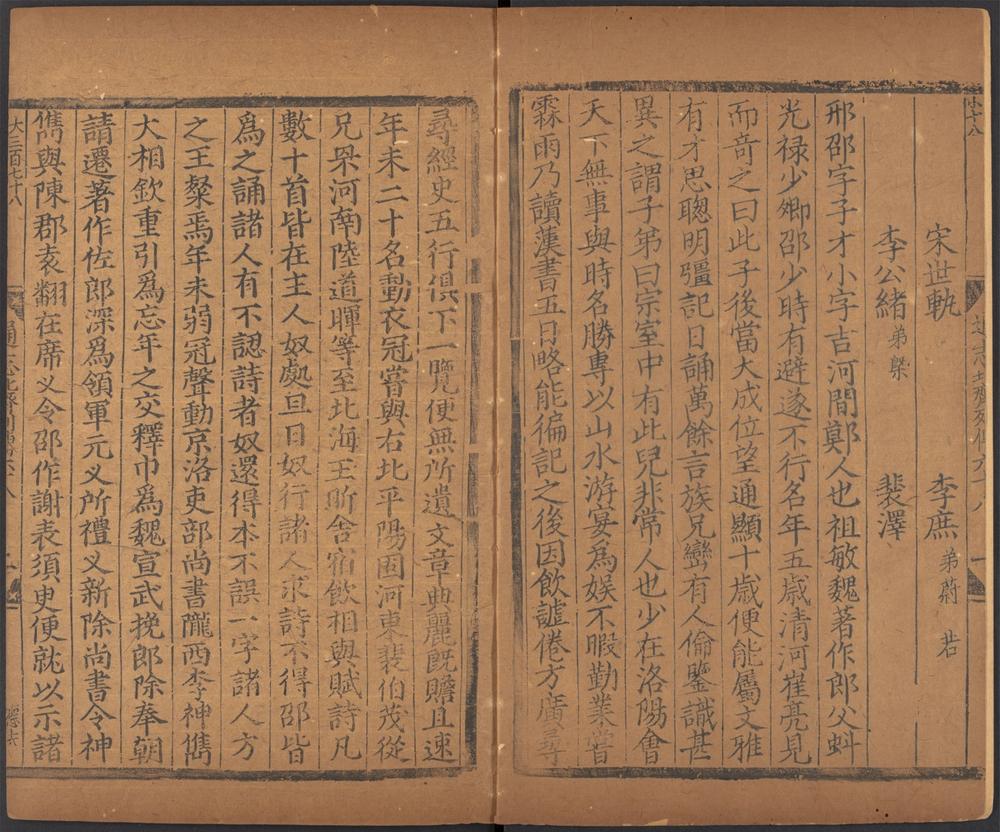 小十八
宋世軌　李庶 弟蔚 若
李公緒 弟槩　裴澤
邢邵字子才小字吉河間鄚人也祖敏魏著作郎父虯
光禄少卿邵少時有避遂不行名年五歳清河崔亮見
而竒之曰此子後當大成位望通顯十歳便能屬文雅
有才思聦明彊記日誦萬餘言族兄巒有人倫鑒識甚
異之謂子弟曰宗室中有此兒非常人也少在洛陽會
天下無事與時名勝專以山水游宴爲娱不暇勤業嘗
霖雨乃讀漢書五日略能徧記之後因飲謔倦方廣尋
尋經史五行俱下一覽便無所遺文章典麗旣贍且速
年未二十名動衣冠嘗與右北平陽固河東裴伯茂從
兄罘河南陸道暉等至北海王昕舍宿飲相與賦詩凡
數十首皆在主人奴處旦日奴行諸人求詩不得邵皆
爲之誦諸人有不認詩者奴還得本不誤一字諸人方
之王粲焉年未弱冠聲動京洛吏部尚書隴西李神儁
大相欽重引爲忘年之交釋巾爲魏宣武挽郎除奉朝
請遷著作佐郎深爲領軍元义所禮义新除尚書令神
儁與陳郡袁翻在席义令邵作謝表須臾便就以示諸
大三百七十八